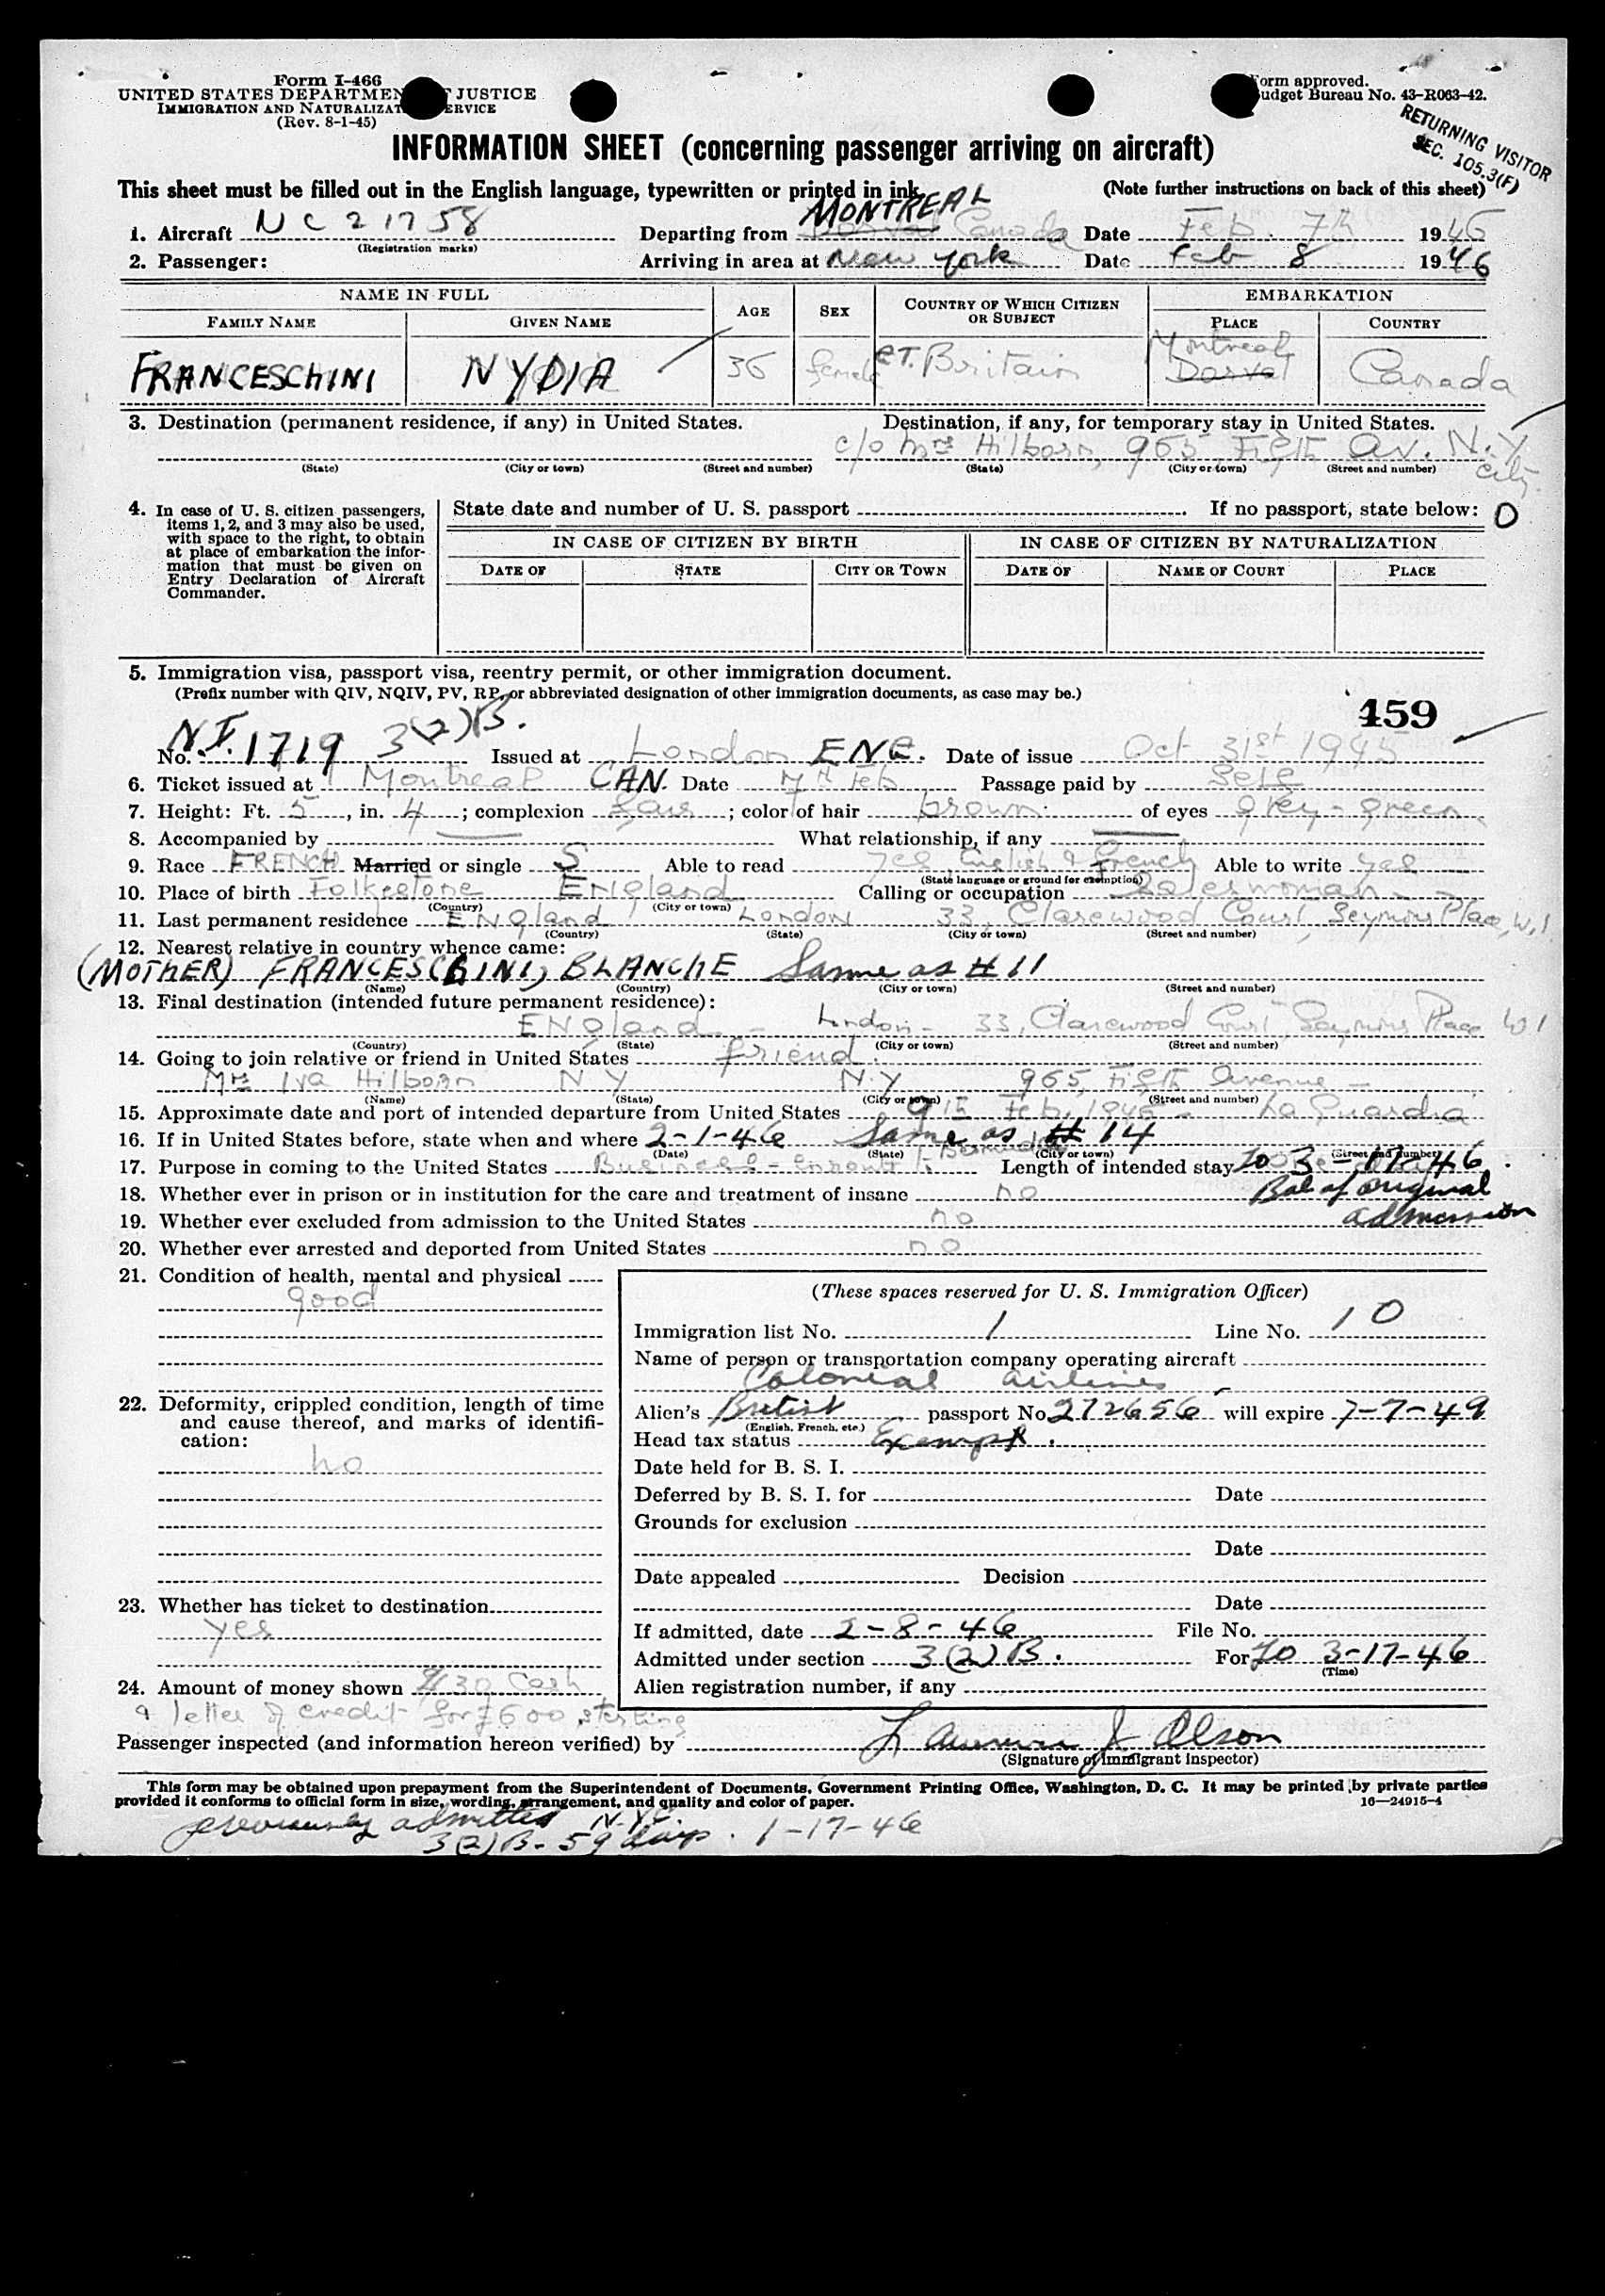 Form I-466
UNITED STATES DEPARTMEN JUSTICE
IMMIGRATION AND NATURALIZAT ERVICE
(Rev. 8-1-45)
Form approved.
Budget Bureau No. 43-R063-42.
RETURNING VISITOR
SEC. 105.3(F)
INFORMATION SHEET (concerning passenger arriving on aircraft)
This sheet must be filled out in the English language, typewritten or printed in ink. (Note further instructions on back of this sheet)
MONTREAL
1. Aircraft NC21758 Departing from Dorval Canada Date Feb. 7th 1946
(Registration marks)
2. Passenger: Arriving in area at New York Date Feb 8 1946
NAME IN FULL AGE SEX COUNTRY OF WHICH CITIZEN OR SUBJECT EMBARKATION
FAMILY NAME GIVEN NAME PLACE COUNTRY
FRANCESCHINI NYDIA 36 female GT. Britain Montreal Dorval Canada
3. Destination (permanent residence, if any) in United States. Destination, if any, for temporary stay in United States.
c/o Mrs Hilborn, 965, Fifth Av. N.Y. City.
(State) (City or town) (Street and number) (State) (City or town) (Street and number)
4. In case of U. S. citizen passengers, items 1, 2, and 3 may also be used, with space to the right, to obtain at place of embarkation the information that must be given on Entry Declaration of Aircraft Commander.
State date and number of U. S. passport If no passport, state below: O
IN CASE OF CITIZEN BY BIRTH IN CASE OF CITIZEN BY NATURALIZATION
DATE OF STATE CITY OR TOWN DATE OF NAME OF COURT PLACE
5. Immigration visa, passport visa, reentry permit, or other immigration document.
(Prefix number with QIV, NQIV, PV, RP, or abbreviated designation of other immigration documents, as case may be.)
459
No. N.I. 1719 3(2)B. Issued at London ENG. Date of issue Oct 31st 1945
6. Ticket issued at Montreal CAN. Date 7th Feb Passage paid by Self
7. Height: Ft. 5, in. 4; complexion fair; color of hair brown of eyes grey-green
8. Accompanied by — What relationship, if any —
9. Race FRENCH Married or single S Able to read yes English & French Able to write yes
(State language or ground for exemption)
10. Place of birth Folkestone England Calling or occupation Saleswoman
(Country) (City or town)
11. Last permanent residence England London 33, Clarewood Court, Seymour Place, W.1
(Country) (State) (City or town) (Street and number)
12. Nearest relative in country whence came:
(MOTHER) FRANCESCHINI, BLANCHE Same as #11
(Name) (Country) (City or town) (Street and number)
13. Final destination (intended future permanent residence):
England - London - 33, Clarewood Court Seymour Place W1
(Country) (State) (City or town) (Street and number)
14. Going to join relative or friend in United States friend.
Mrs Iva Hilborn N Y N.Y 965, Fifth Avenue -
(Name) (State) (City or town) (Street and number)
15. Approximate date and port of intended departure from United States 9th Feb. 1946 - La Guardia
16. If in United States before, state when and where 2-1-46 Same as #14
(Date) (State) (City or town) (Street and number)
17. Purpose in coming to the United States Business - enroute to Bermuda Length of intended stay To 3-17-46.
Bal of original admission
18. Whether ever in prison or in institution for the care and treatment of insane no
19. Whether ever excluded from admission to the United States no
20. Whether ever arrested and deported from United States no
21. Condition of health, mental and physical
good
22. Deformity, crippled condition, length of time and cause thereof, and marks of identification:
no
23. Whether has ticket to destination
yes
24. Amount of money shown $30 Cash
& letter of credit for £600 sterling
(These spaces reserved for U. S. Immigration Officer)
Immigration list No. 1 Line No. 10
Name of person or transportation company operating aircraft
Colonial Airlines
Alien's British passport No. 272656 will expire 7-7-49
(English, French, etc.)
Head tax status Exempt.
Date held for B. S. I.
Deferred by B. S. I. for Date
Grounds for exclusion
Date
Date appealed Decision
Date
If admitted, date 2-8-46 File No.
Admitted under section 3(2)B. For To 3-17-46
(Time)
Alien registration number, if any
Passenger inspected (and information hereon verified) by Lawrence J Olson
(Signature of immigrant inspector)
This form may be obtained upon prepayment from the Superintendent of Documents, Government Printing Office, Washington, D. C. It may be printed by private parties
provided it conforms to official form in size, wording, arrangement, and quality and color of paper. 16—24915-4
previously admitted N.Y.C.
3(2)B - 59 days. 1-17-46